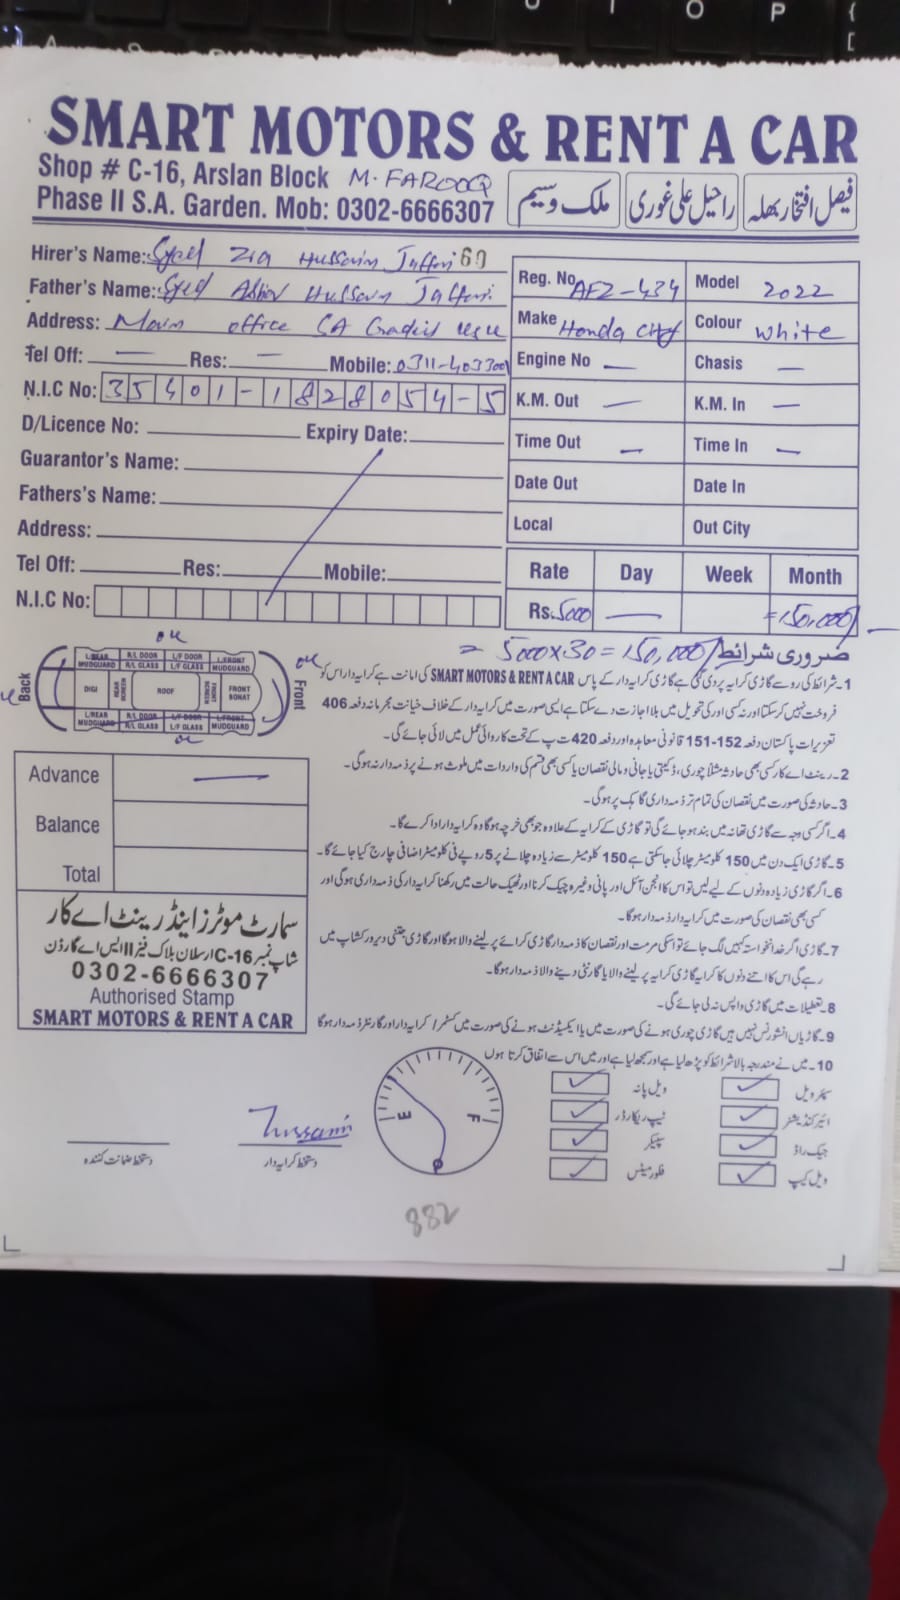 SMART MOTORS & RENT A CAR
Shop # C-16, Arslan Block M. FAROOQ
Phase II S.A. Garden. Mob: 0302-6666307
ملک وسیم
راحیل علی غوری
فیصل افتخار بھلہ
Hirer's Name: Syed Zia Hussain Jafferi 60
Father's Name: Syed Hussain Jafferi
Address: Main office SA
Tel Off: — Res: — Mobile:
N.I.C No: 35401-1828054-5
D/Licence No: Expiry Date:
Guarantor's Name:
Fathers's Name:
Address:
Tel Off: Res: Mobile:
N.I.C No:
Reg. No AFZ-434 Model 2022
Make Honda City Colour white
Engine No — Chasis —
K.M. Out — K.M. In —
Time Out — Time In —
Date Out Date In
Local Out City
Rate Day Week Month
Rs. 5000 — =150,000/-
= 5000x30=150,000/
ضروری شرائط
ok
ok
ok
Back
Front
L/REAR MUDGUARD R/L DOOR R/L GLASS L/F DOOR L/F GLASS L/FRONT MUDGUARD
DIGI REAR SCREEN ROOF FRONT SCREEN FRONT BONAT
L/REAR MUDGUARD R/L DOOR R/L GLASS L/F DOOR L/F GLASS L/FRONT MUDGUARD
1۔شرائط کی رو سے گاڑی کرایہ پر دی گئی ہے گاڑی کرایہ دار کے پاس SMART MOTORS & RENT A CAR کی امانت ہے کرایہ دار اس کو
فروخت نہیں کرسکتا اور نہ کسی اور کی تحویل میں بلا اجازت دے سکتا ہے ایسی صورت میں کرایہ دار کے خلاف خیانت مجرمانہ دفعہ 406
تعزیرات پاکستان دفعہ 152-151 قانونی معاہدہ اور دفعہ 420 ت پ کے تحت کاروائی عمل میں لائی جائے گی۔
2۔رینٹ اے کار کسی بھی حادثہ مثلاً چوری، ڈکیتی یا جانی و مالی نقصان یا کسی بھی قسم کی واردات میں ملوث ہونے پر ذمہ دار نہ ہوگی۔
3۔حادثہ کی صورت میں نقصان کی تمام تر ذمہ داری گاہک پر ہوگی۔
4۔اگر کسی وجہ سے گاڑی تھانہ میں بند ہو جائے گی تو گاڑی کے کرایہ کے علاوہ جو بھی خرچہ ہوگا وہ کرایہ دار ادا کرے گا۔
5۔گاڑی ایک دن میں 150 کلومیٹر چلائی جاسکتی ہے 150 کلومیٹر سے زیادہ چلانے پر 5 روپے فی کلومیٹر اضافی چارج کیا جائے گا۔
6۔اگر گاڑی زیادہ دنوں کے لیے لیں تو اس کا انجن آئل اور پانی وغیرہ چیک کرنا اور ٹھیک حالت میں رکھنا کرایہ دار کی ذمہ داری ہوگی اور
کسی بھی نقصان کی صورت میں کرایہ دار ذمہ دار ہوگا۔
7۔گاڑی اگر خدانخواستہ کہیں لگ جائے تو اسکی مرمت اور نقصان کا ذمہ دار گاڑی کرائے پر لینے والا ہوگا اور گاڑی جتنی دیر ورکشاپ میں
رہے گی اس کا اتنے دنوں کا کرایہ گاڑی کرایہ پر لینے والا یا گارنٹی دینے والا ذمہ دار ہوگا۔
8۔تعطیلات میں گاڑی واپس نہ لی جائے گی۔
9۔گاڑیاں انشورنس نہیں ہیں گاڑی چوری ہونے کی صورت میں یا ایکسیڈنٹ ہونے کی صورت میں کسٹمر / کرایہ دار اور گارنٹر ذمہ دار ہوگا
10۔میں نے مندرجہ بالا شرائط کو پڑھ لیا ہے اور سمجھ لیا ہے اور میں اس سے اتفاق کرتا ہوں
Advance —
Balance
Total
سمارٹ موٹرز اینڈ رینٹ اے کار
شاپ نمبر C-16 ارسلان بلاک فیز II ایس اے گارڈن
0302-6666307
Authorised Stamp
SMART MOTORS & RENT A CAR
E F
سپئر ویل ویل پانہ
ائیر کنڈیشنر ٹیپ ریکارڈر
جیک راڈ سپیکر
ویل کیپ فلور میٹس
Hussain
دستخط کرایہ دار
دستخط ضمانت کنندہ
882